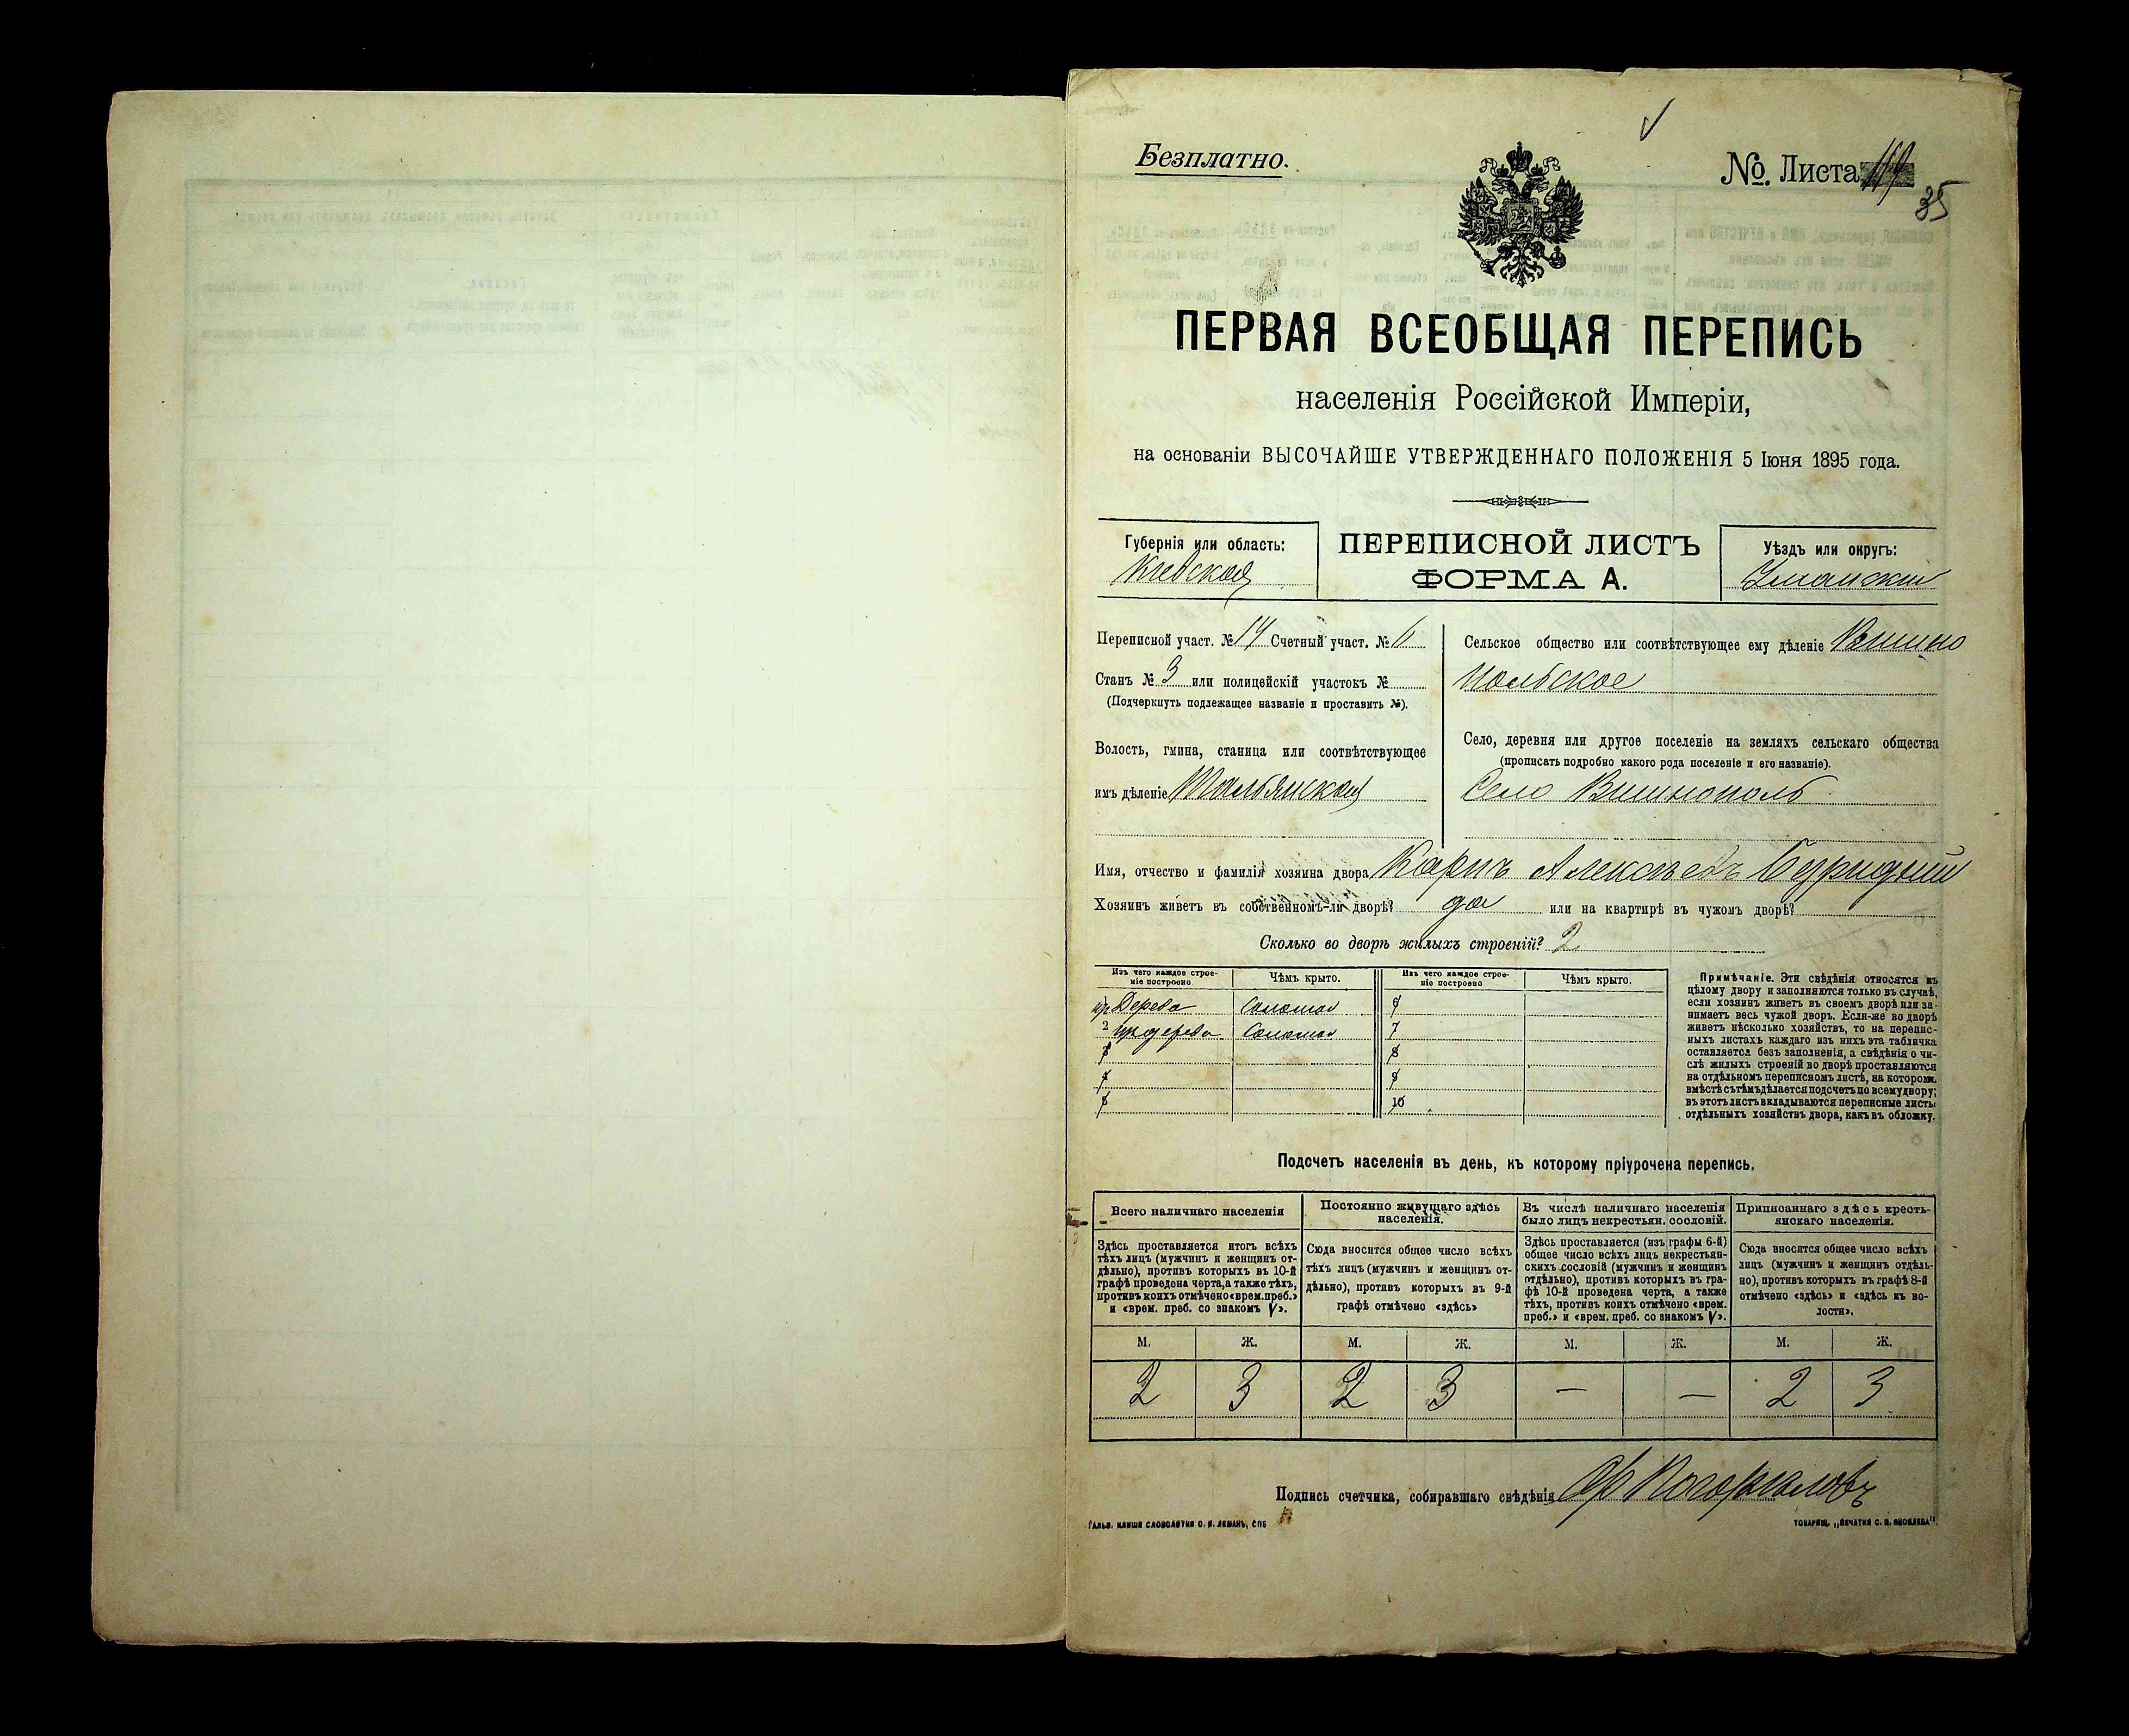 Безплатно.
№ Листа 119
35
ПЕРВАЯ ВСЕОБЩАЯ ПЕРЕПИСЬ
населенія Россійской Имперіи,
на основаніи ВЫСОЧАЙШЕ УТВЕРЖДЕННАГО ПОЛОЖЕНІЯ 5 Іюня 1895 года.
Губернія или область:
Кіевская
ПЕРЕПИСНОЙ ЛИСТЪ
ФОРМА А.
Уѣздъ или округъ:
Уманскій
Переписной участ. № 14 Счетный участ. №
Станъ № 3 или полицейскій участокъ №
(Подчеркнуть подлежащее названіе и проставить №).
Волость, гмина, станица или соотвѣтствующее
имъ дѣленіе Тальянская
Сельское общество или соотвѣтствующее ему дѣленіе Вишно
польское
Село, деревня или другое поселеніе на земляхъ сельскаго общества
(прописать подробно какого рода поселеніе и его названіе).
Село Вишнополь
Имя, отчество и фамилія хозяина двора Карпъ Алексѣевъ
Хозяинъ живетъ въ собственномъ-ли дворѣ? да или на квартирѣ въ чужомъ дворѣ?
Сколько во дворѣ жилыхъ строеній? 2
Изъ чего каждое строе-
ніе построено
Чѣмъ крыто.
Изъ чего каждое строе-
ніе построено
Чѣмъ крыто.
Дерева Соломой 6
2 Соломой 7
3 8
4 9
5 10
Примѣчаніе. Эти свѣдѣнія относятся къ
цѣлому двору и заполняются только въ случаѣ,
если хозяинъ живетъ въ своемъ дворѣ или за-
нимаетъ весь чужой дворъ. Если-же во дворѣ
живетъ нѣсколько хозяйствъ, то на перепис-
ныхъ листахъ каждаго изъ нихъ эта табличка
оставляется безъ заполненія, а свѣдѣнія о чи-
слѣ жилыхъ строеній во дворѣ проставляются
на отдѣльномъ переписномъ листѣ, на которомъ
вмѣстѣ съ тѣмъ дѣлается подсчетъ по всему двору;
въ этотъ листъ вкладываются переписные листы
отдѣльныхъ хозяйствъ двора, какъ въ обложку.
Подсчетъ населенія въ день, къ которому пріурочена перепись.
Всего наличнаго населенія
Здѣсь проставляется итогъ всѣхъ
тѣхъ лицъ (мужчинъ и женщинъ от-
дѣльно), противъ которыхъ въ 10-й
графѣ проведена черта, а также тѣхъ,
противъ коихъ отмѣчено «врем. преб.»
и «врем. преб. со знакомъ V».
Постоянно живущаго здѣсь
населенія.
Сюда вносится общее число всѣхъ
тѣхъ лицъ (мужчинъ и женщинъ от-
дѣльно), противъ которыхъ въ 9-й
графѣ отмѣчено «здѣсь»
Въ числѣ наличнаго населенія
было лицъ некрестьян. сословій.
Здѣсь проставляется (изъ графы 6-й)
общее число всѣхъ лицъ некрестьян-
скихъ сословій (мужчинъ и женщинъ
отдѣльно), противъ которыхъ въ гра-
фѣ 10-й проведена черта, а также
тѣхъ, противъ коихъ отмѣчено «врем.
преб.» и «врем. преб. со знакомъ V».
Приписаннаго здѣсь кресть-
янскаго населенія.
Сюда вносится общее число всѣхъ
лицъ (мужчинъ и женщинъ отдѣль-
но), противъ которыхъ въ графѣ 8-й
отмѣчено «здѣсь» и «здѣсь къ во-
лости».
М. Ж. М. Ж. М. Ж. М. Ж.
2 3 2 3 — — 2 3
Подпись счетчика, собиравшаго свѣдѣнія
ГАЛЬВ. КЛИШЕ СЛОВОЛИТНИ О. И. ЛЕМАНЪ, СПБ
ТОВАРИЩ. „ПЕЧАТНЯ С. П. ЯКОВЛЕВА".